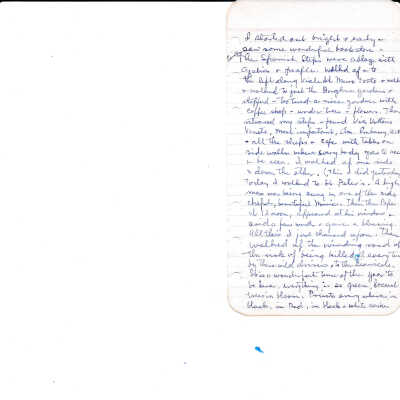 I started out bright & early &
saw some wonderful bookstore -
The Spanish Steps were ablaze with
azaleas & people. Walked up to
the left along Viale
& walked to just the Borghese gardens &
stopped - Too tired - a nice garden with
coffee shop - under trees - flowers. Then
retraced my steps - found Via Vittorio
Veneto, most important, Am Embassy, etc
& all the shops & cafe with tables on
side walks where every body goes to see
& be seen. I walked up one side
& down the other. (This I did yesterday)
Today I walked to St. Peter's. A high
mass was being sung in one of the side
chapels, beautiful music. Then the Pope
at noon, appeared at his window &
said a few words & gave a blessing.
All this I just chanced upon. Then
walked up the winding road at
the risk of being killed at every turn
by the wild drivers, to the
It is a wonderful time of the year to
be here, everything is so green,
trees in bloom. Priests every where in
black, in Red, in black & white